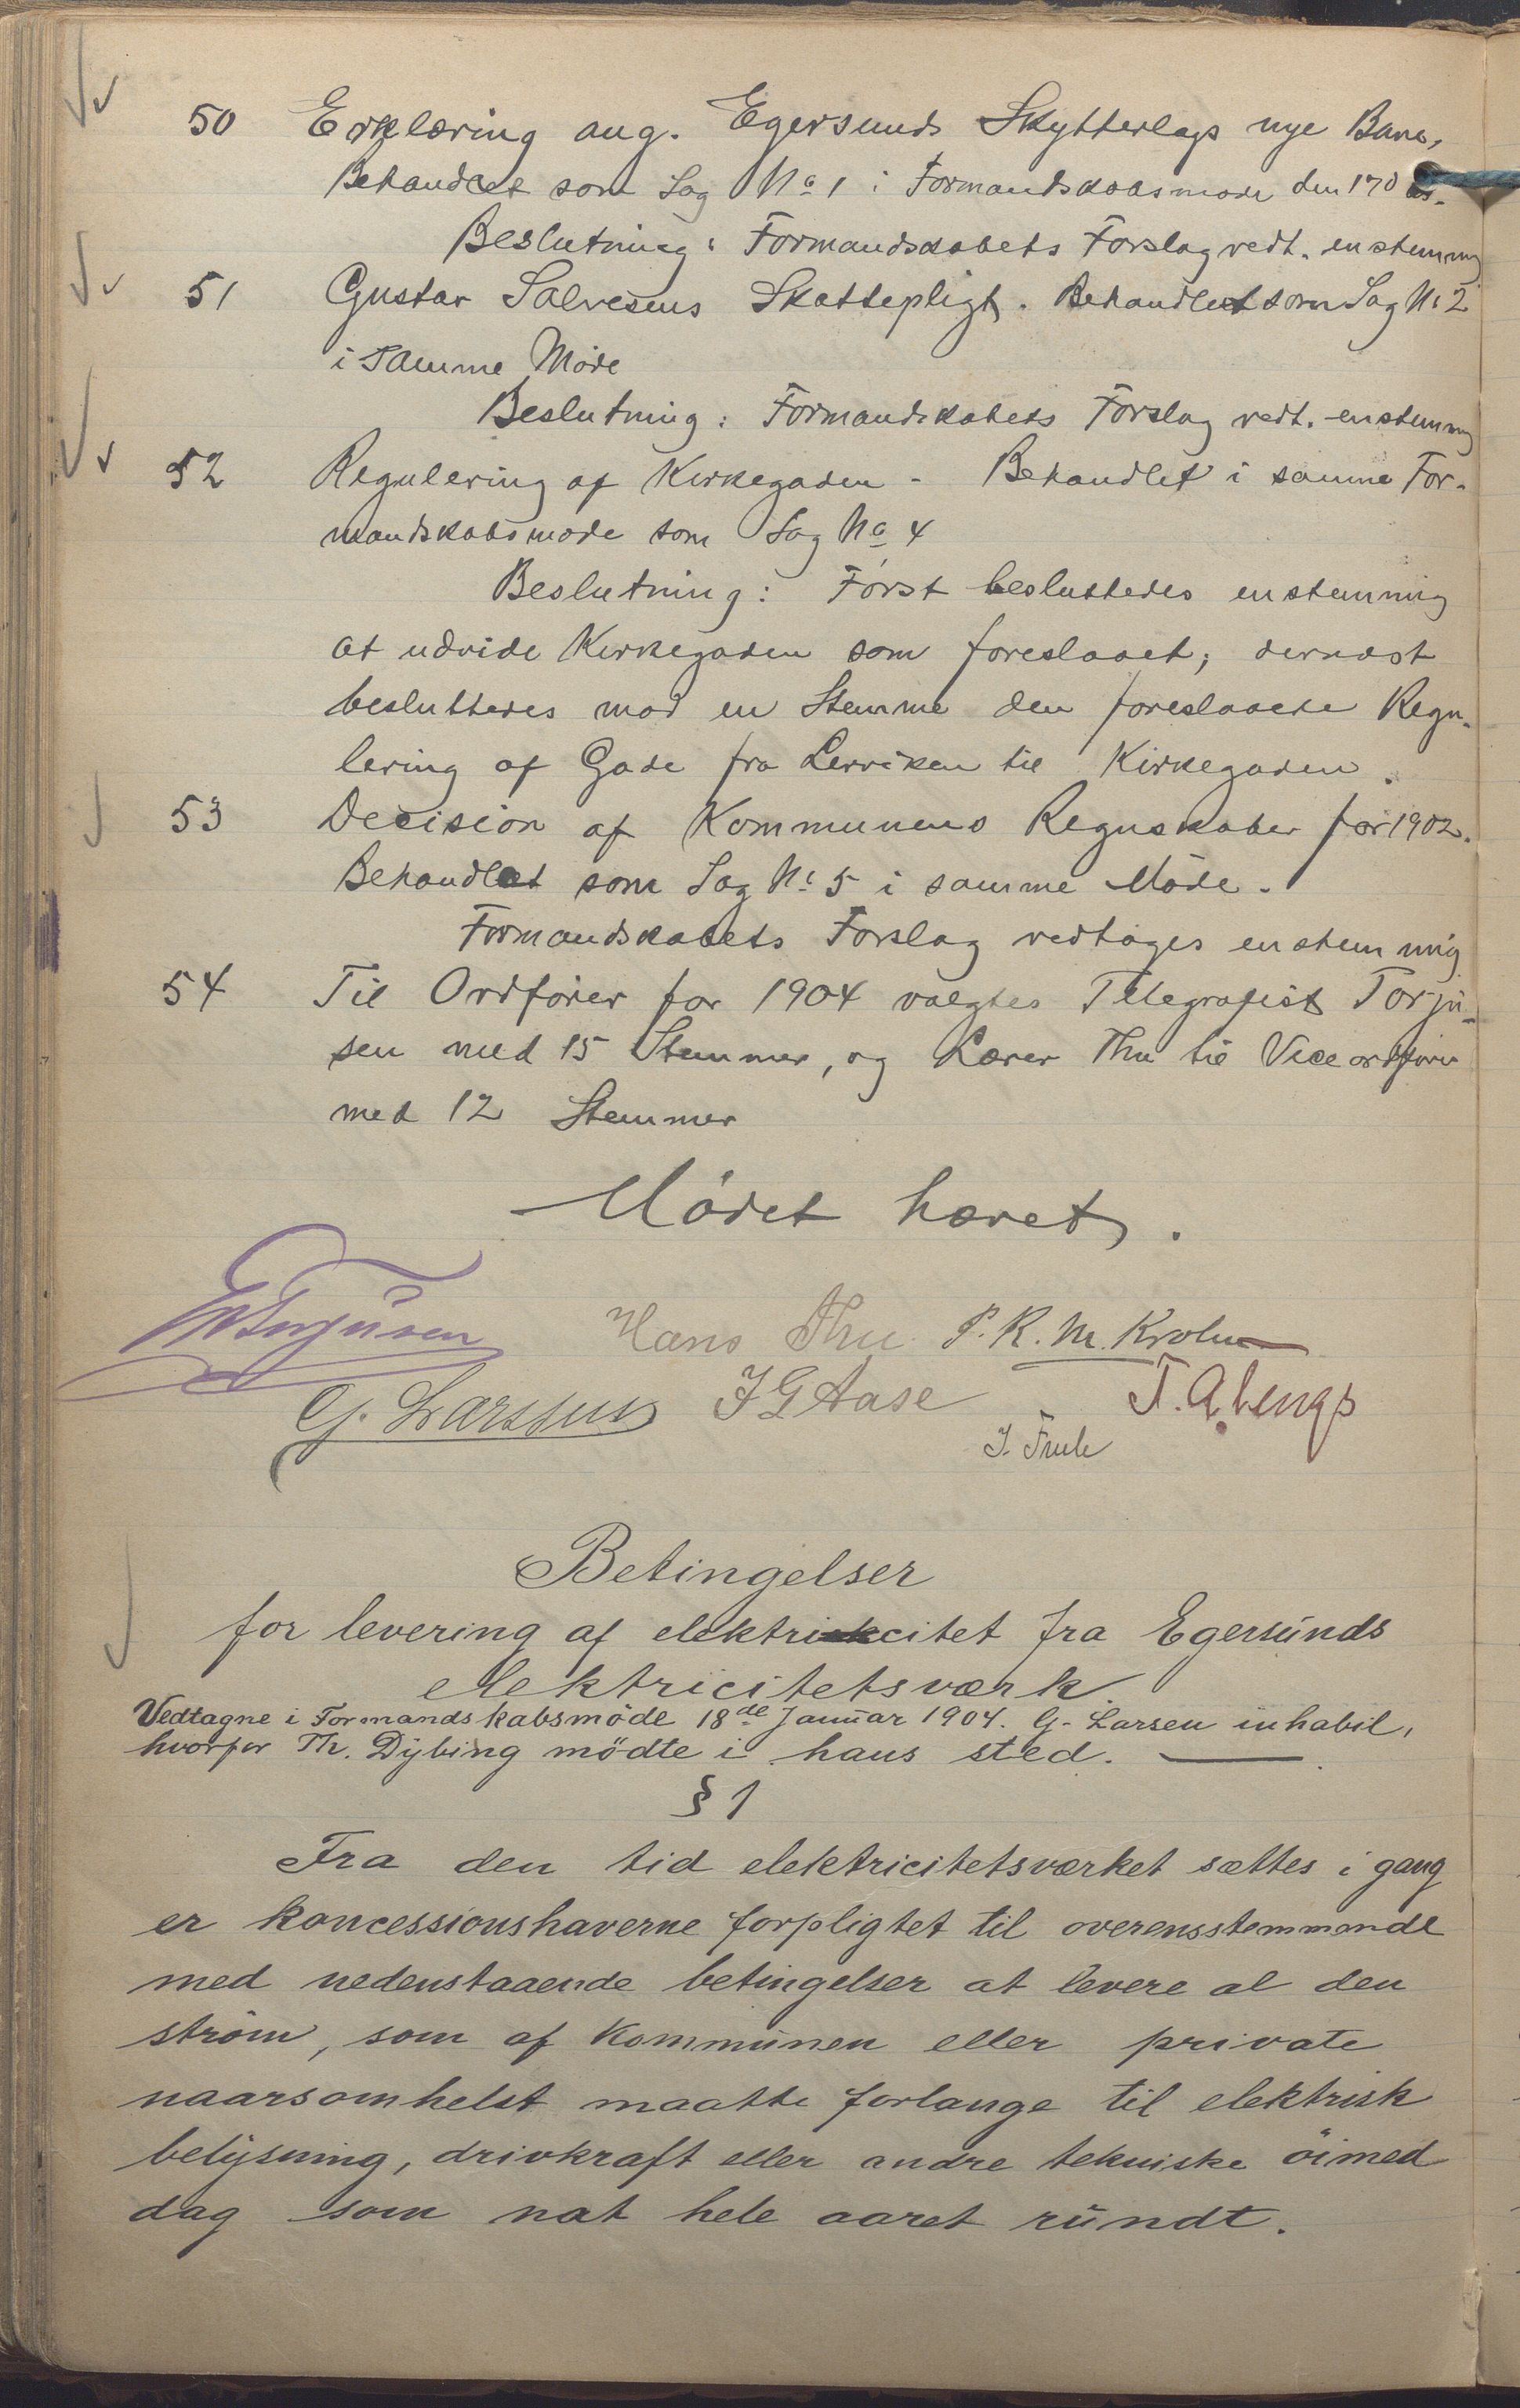 50 Erklæring ang. Egersunds Skytterlags nye Bane,
Behandlet som Sag No 1 i Formandskabsmøde den 17 ds.
Beslutning: Formandskabets Forslag vedt. enstemmig
51 Gustav Salvesens Skattepligt. Behandlet som Sag No 2
i samme Møde
Beslutning: Formandskabets Forslag vedt. enstemmig
52 Regulering af Kirkegaden - Behandlet i samme For-
mandskabsmøde som Sag No 4
Beslutning: Først besluttedes enstemmig
at udvide Kirkegaden som foreslaaet; dernæst
besluttedes mod en Stemme den foreslaaede Regu-
lering af Gade fra Lerviken til Kirkegaden.
53 Decision af Kommunens Regnskaber for 1902.
Behandlet som Sag No 5 i samme Møde.
Formandskabets Forslag vedtages enstemmig
54 Til Ordfører for 1904 valgtes Telegrafist Torju-
sen med 15 Stemmer, og Lærer Thu til Viceordfører
med 12 Stemmer
Mødet hævet.
Torjusen Hans Thu P. K. M. Krohn
G. Larssen J G Aase T. A. Lengs
Betingelser
for levering af elektricitet fra Egersunds
elektricitetsværk.
Vedtagne i Formandskabsmöde 18de Januar 1904. G. Larsen inhabil,
hvorfor Th. Dybing mödte i hans sted.
§ 1
Fra den tid elektricitetsværket sættes i gang
er koncessionshaverne forpligtet til overensstemmende
med nedenstaaende betingelser at levere al den
strøm, som af Kommunen eller private
naarsomhelst maatte forlange til elektrisk
belysning, drivkraft eller andre tekniske öimed
dag som nat hele aaret rundt.